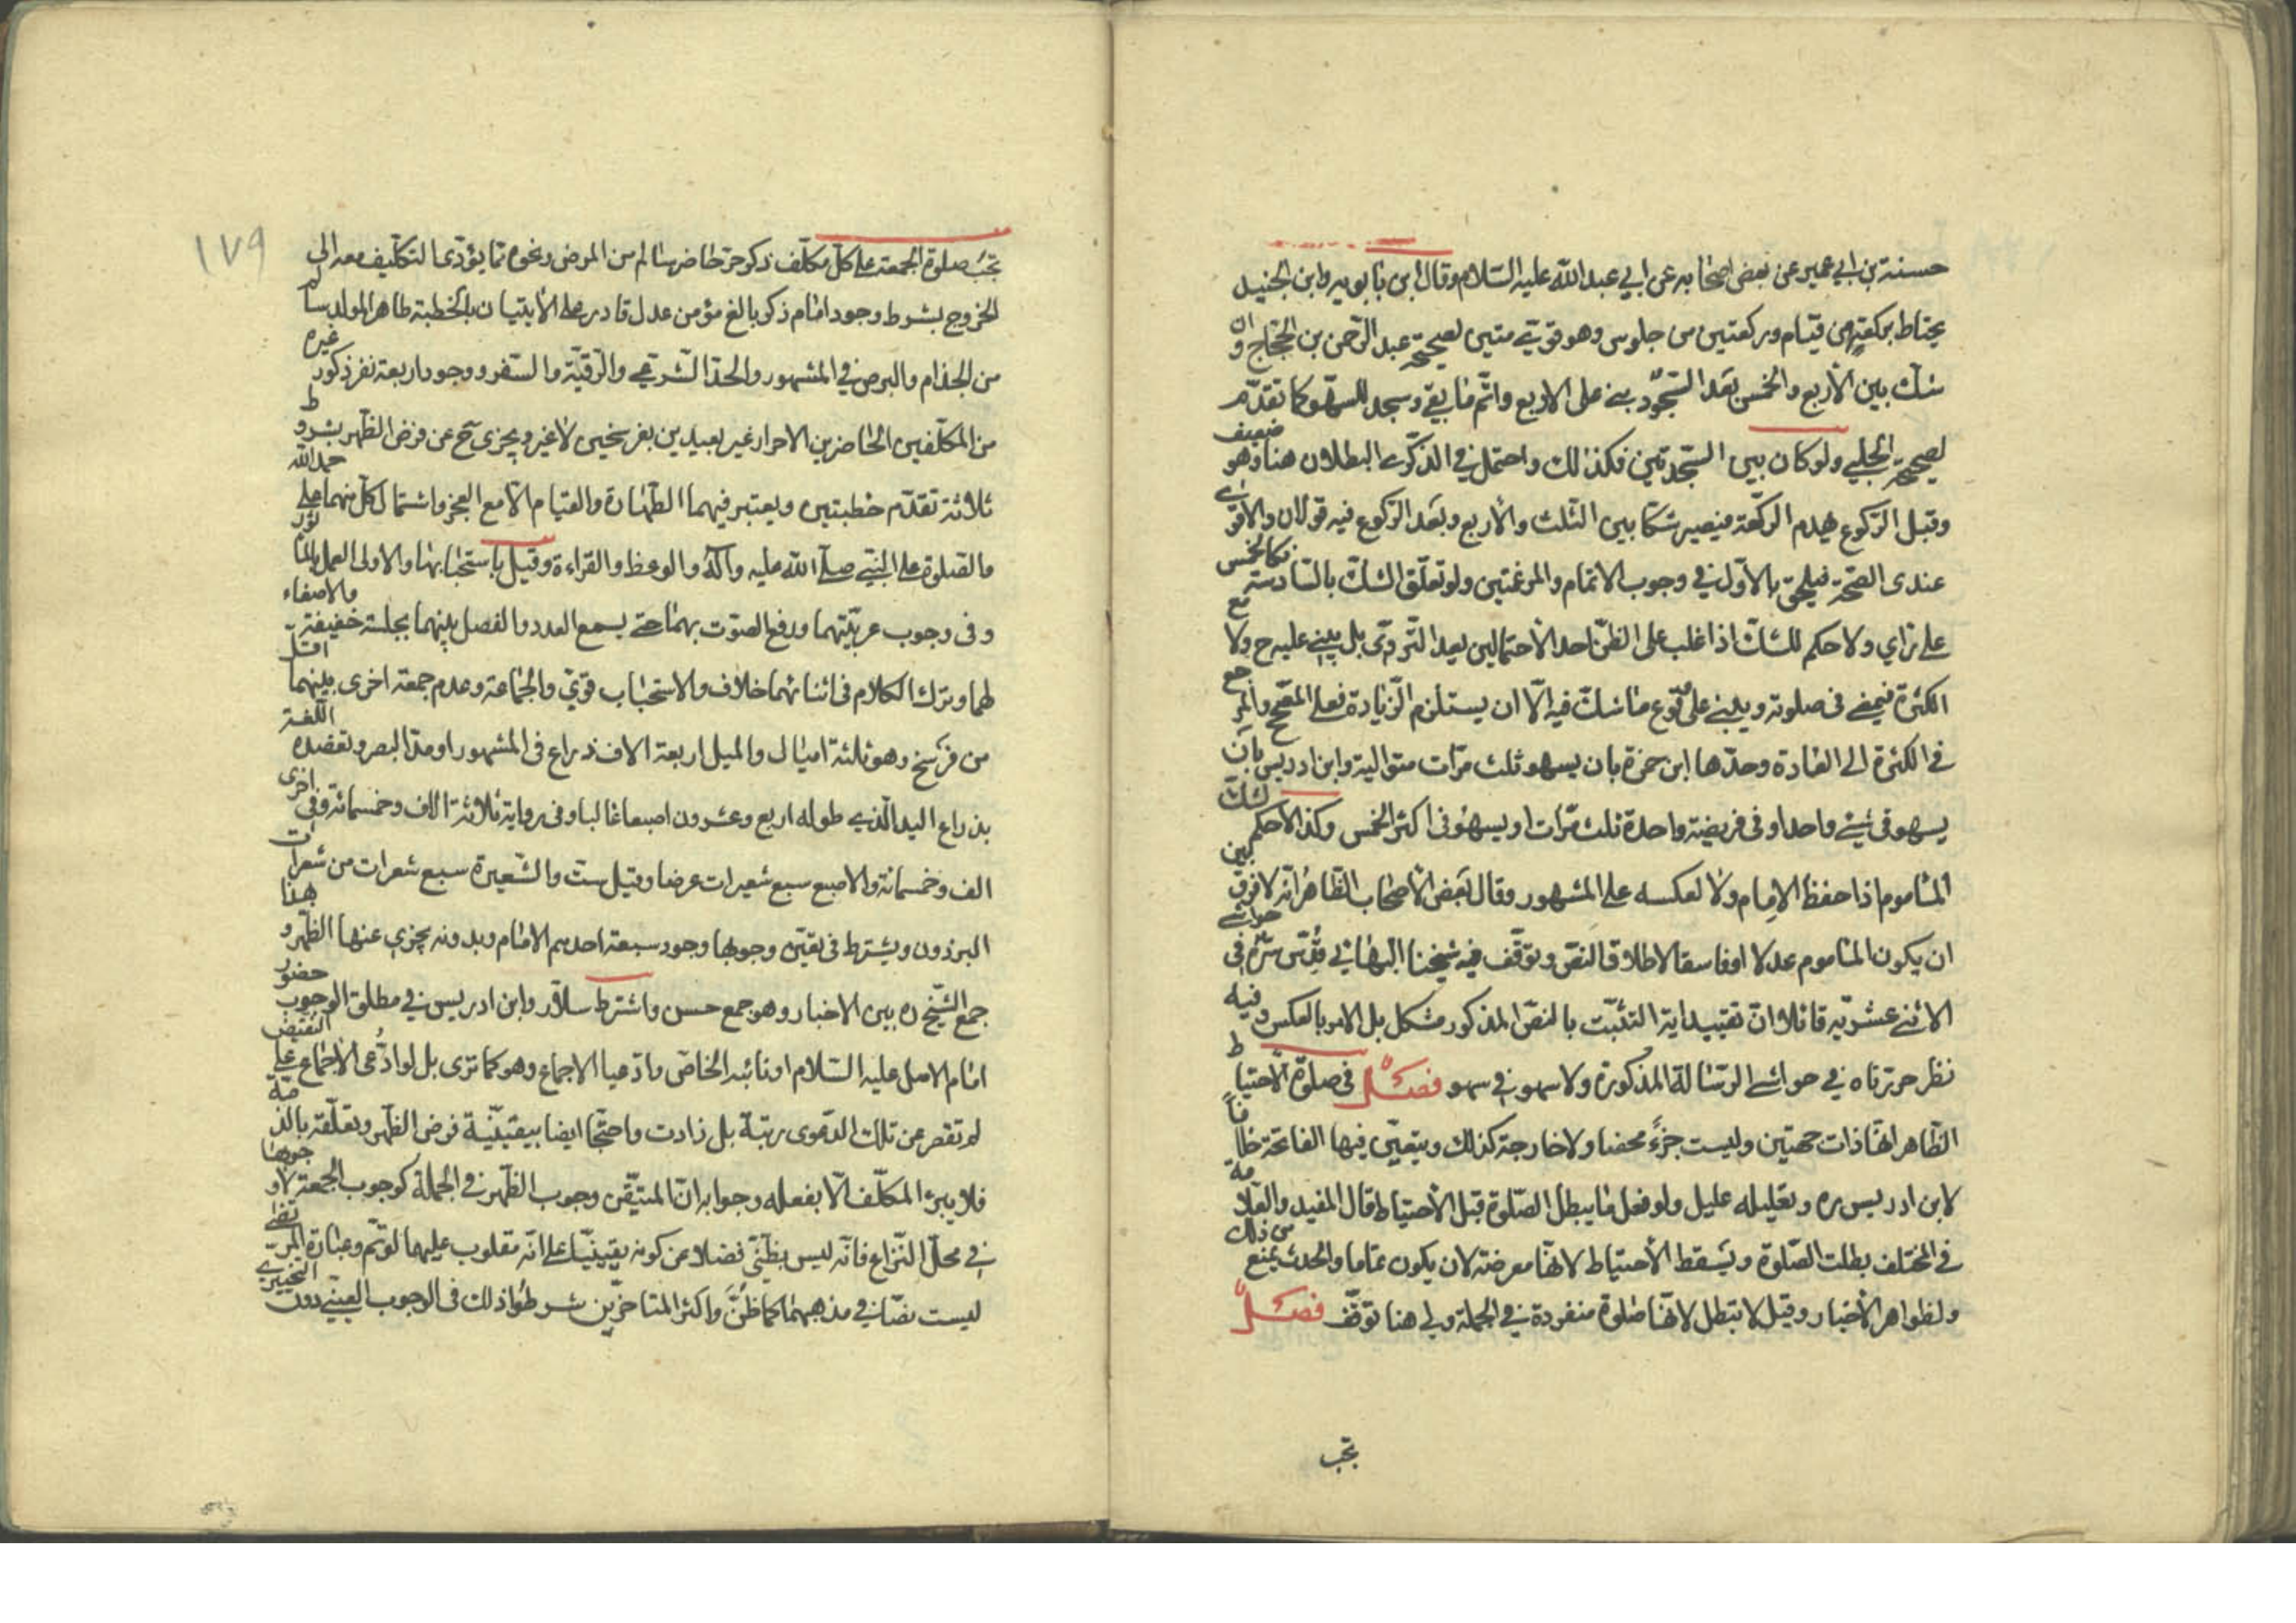 حسنة بن ابي عمير عن بعض اصحابه عن ابي عبد الله عليه السلام وقال ابن بابويه وابن الجنيد
يحتاط بركعة من قيام وركعتين من جلوس وهو قوي متين لصحيحة عبد الرحمن بن الحجاج وان
شك بين الاربع والخمس بعد السجود بنى على الاربع واتم ما بقي وسجد للسهو كما تقدم
لصحيحة الحلبي ولو كان بين السجدتين فكذلك واحتمل في الذكرى البطلان هنا وهو ضعيف
وقبل الركوع يهدم الركعة فيصير شكا بين الثلث والاربع وبعد الركوع فيه قولان والاقوى
عندى الصحة فيلحق بالاول في وجوب الاتمام والمرغمتين ولو تعلق الشك بالسادسة فكالخمس
على راي ولا حكم للشك اذا غلب على الظن احد الاحتمالين بعد التروي بل يبنى عليه ح ولا مع
الكثرة فيمضى فى صلوته ويبنى على وقوع ما شك فيه الا ان يستلزم الزيادة فعلى المصحح والمرجع
في الكثرة الى العادة وحدها ابن حمزة بان يسهو ثلث مرات متوالية وابن ادريس بان
يسهو في شئ واحد او فى فريضة واحدة ثلث مرات او يسهو فى اكثر الخمس وكذا لا حكم لشك
الماموم اذا حفظ الامام ولا لعكسه على المشهور وقال بعض الاصحاب الظاهر انه لا فرق بين
ان يكون الماموم عدلا او فاسقا لاطلاق النص وتوقف فيه شيخنا البهائي قدس سره فى حواشى
الاثنى عشرية قائلا ان تقييد اية التثبت بالنص المذكور مشكل بل الامر بالعكس وفيه
نظر حررناه في حواشي الرسالة المذكورة ولا سهو في سهو فصل فى صلوة الاحتياط
الظاهر انها ذات جهتين وليست جزءً محضا ولا خارجة كذلك ويتعين فيها الفاتحة خلافاً
لابن ادريس ره وتعليله عليل ولو فعل ما يبطل الصلوة قبل الاحتياط قال المفيد والعلامة
في المختلف بطلت الصلوة ويسقط الاحتياط لانها معرضة لان يكون تماما والحدث يمنع من ذلك
ولظواهر الاخبار وقيل لا تبطل لانها صلوة منفردة في الجملة ولي هنا توقف فصل
تجب
١٧٩
تجب صلوة الجمعة على كل مكلف ذكر حر حاضر سالم من المرض ونحوه مما يؤدى التكليف معه الى
الخروج بشرط وجود امام ذكر بالغ مؤمن عدل قادر على الاتيان بالخطبة طاهر المولد سالم
من الجذام والبرص في المشهور والحد الشرعي والرقية والسفر ووجود اربعة نفر ذكور غيره
من المكلفين الحاضرين الاحرار غير بعيدين بفرسخين لا غير ويجزى ح عن فرض الظهر بشروط
ثلاثة تقدم خطبتين ويعتبر فيهما الطهارة والقيام الا مع العجز واشتمال كل منهما على حمد الله
والصلوة على النبي صلى الله عليه وآله والوعظ والقراءة وقيل باستحبابها والاولى العمل بالماثور
وفى وجوب عربيتهما ورفع الصوت بهما حتى يسمع العدد والفصل بينهما بجلسة خفيفة والاصغاء
لهما وترك الكلام فى اثنائهما خلاف والاستحباب قوي والجماعة وعدم جمعة اخرى بينهما اقل
من فرسخ وهو ثلثة اميال والميل اربعة الاف ذراع فى المشهور او مد البصر وتعضده اللغة
بذراع اليد الذي طوله اربع وعشرون اصبعا غالبا وفى رواية ثلاثة الاف وخمسمائة وفى اخرى
الف وخمسمائة والاصبع سبع شعيرات عرضا وقيل ست والشعيرة سبع شعرات من شعرات
البرذون ويشترط فى تعين وجوبها وجود سبعة احدهم الامام وبدونه يجزي عنها الظهر وبهذا
جمع الشيخ ره بين الاخبار وهو جمع حسن واشترط سلار وابن ادريس في مطلق الوجوب حضور
امام الاصل عليه السلام او نائبه الخاص وادعيا الاجماع وهو كما ترى بل لو ادعى الاجماع على النقيض
لم تقصر عن تلك الدعوى رتبة بل زادت واحتجا ايضا بيقينية فرض الظهر وتعلقه بالذمة
فلا يبرئ المكلف الا بفعله وجوابه ان المتيقن وجوب الظهر في الجملة كوجوب الجمعة لا وجوبها
في محل النزاع فانه ليس بظني فضلا عن كونه يقينيا على انه مقلوب عليهما لو تم وعبارة المرتضى
ليست نصا في مذهبهما كما ظن واكثر المتاخرين شرطوا ذلك فى الوجوب العيني دون التخييري